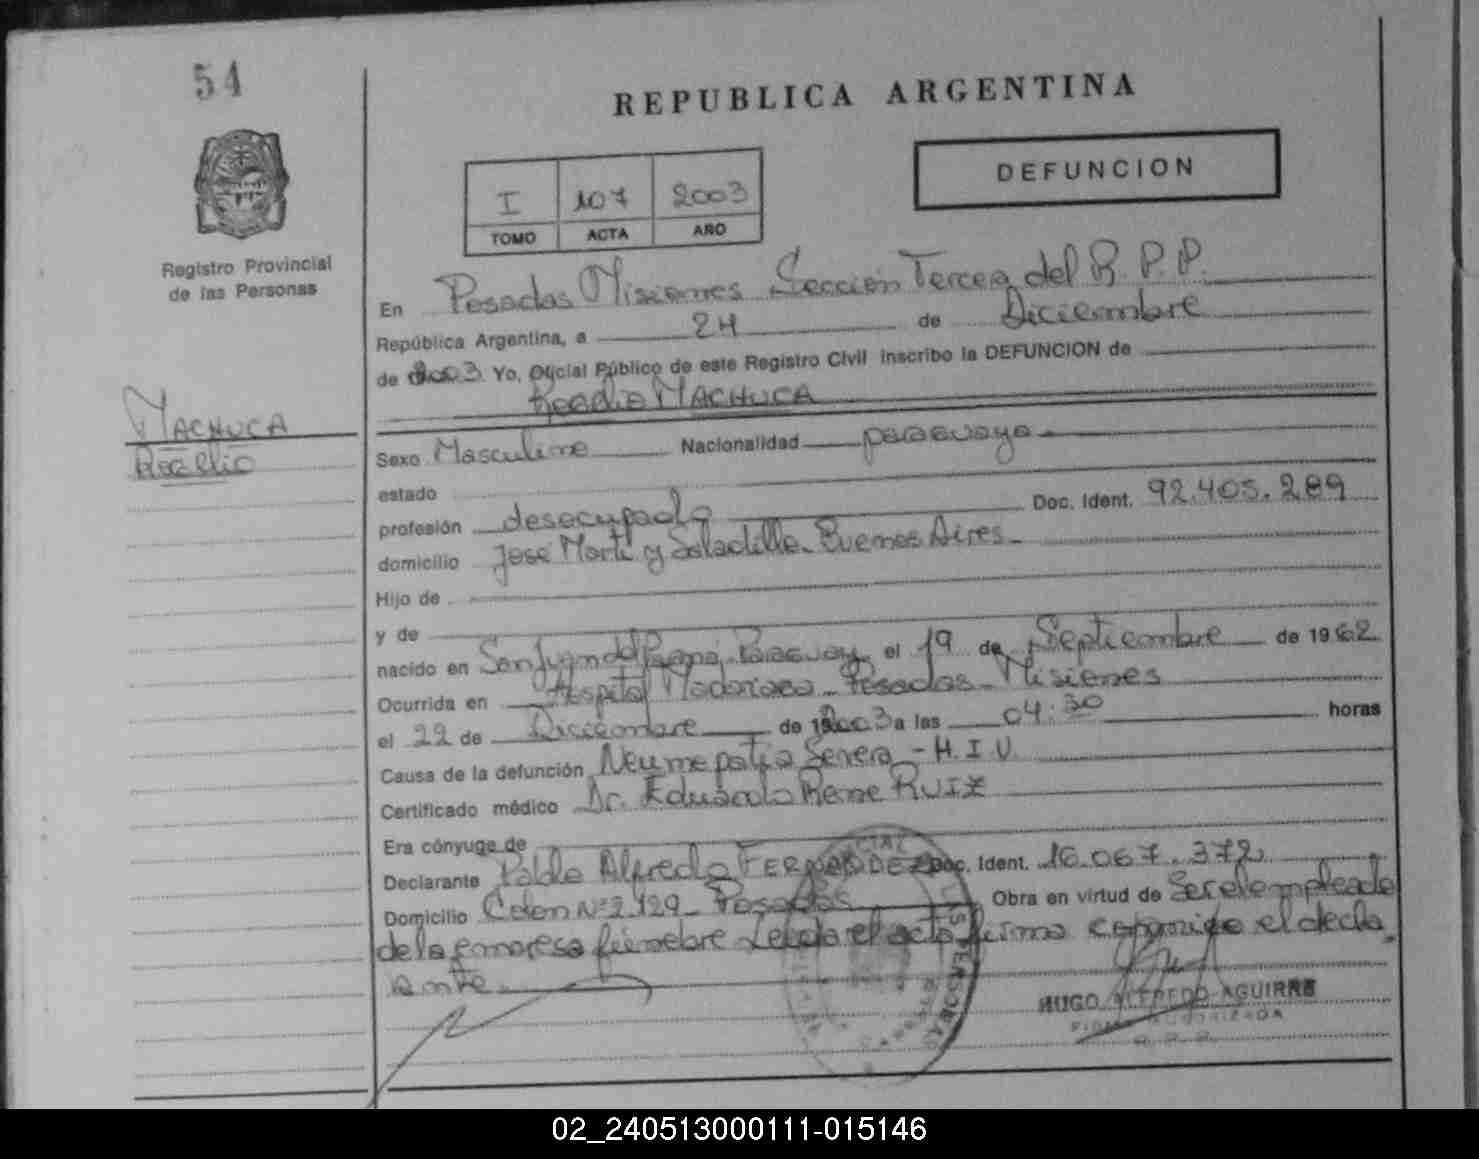 54
REPUBLICA ARGENTINA
DEFUNCION
I 107 2003
TOMO ACTA AÑO
Registro Provincial
de las Personas
En Posadas Misiones Sección Tercera del R.P.P.
República Argentina, a 24 de Diciembre
de 2003 Yo, Oficial Público de este Registro Civil inscribo la DEFUNCION de
MACHUCA
MACHUCA
Sexo Masculino Nacionalidad paraguaya
estado
profesión desocupado Doc. Ident. 92.405.289
domicilio José Martí y Saladillo - Buenos Aires -
Hijo de
y de
nacido en San Juan del Paraná, Paraguay el 19 de Septiembre de 1962
Ocurrida en Hospital Madariaga - Posadas - Misiones
el 22 de Diciembre de 2003 a las 04:30 horas
Causa de la defunción Neumopatia Severa - H.I.V.
Certificado médico Dr. Eduardo Rene RUIZ
Era cónyuge de
Declarante Pablo Alfredo FERNANDEZ Doc. Ident. 16.067.372
Domicilio Colon Nº 2.129 - Posadas Obra en virtud de Ser el empleado
de la empresa fúnebre Leido el acto firma conmigo el decla
ante.
HUGO ALFREDO AGUIRRE
FIRMA AUTORIZADA
R.P.P.
02_240513000111-015146